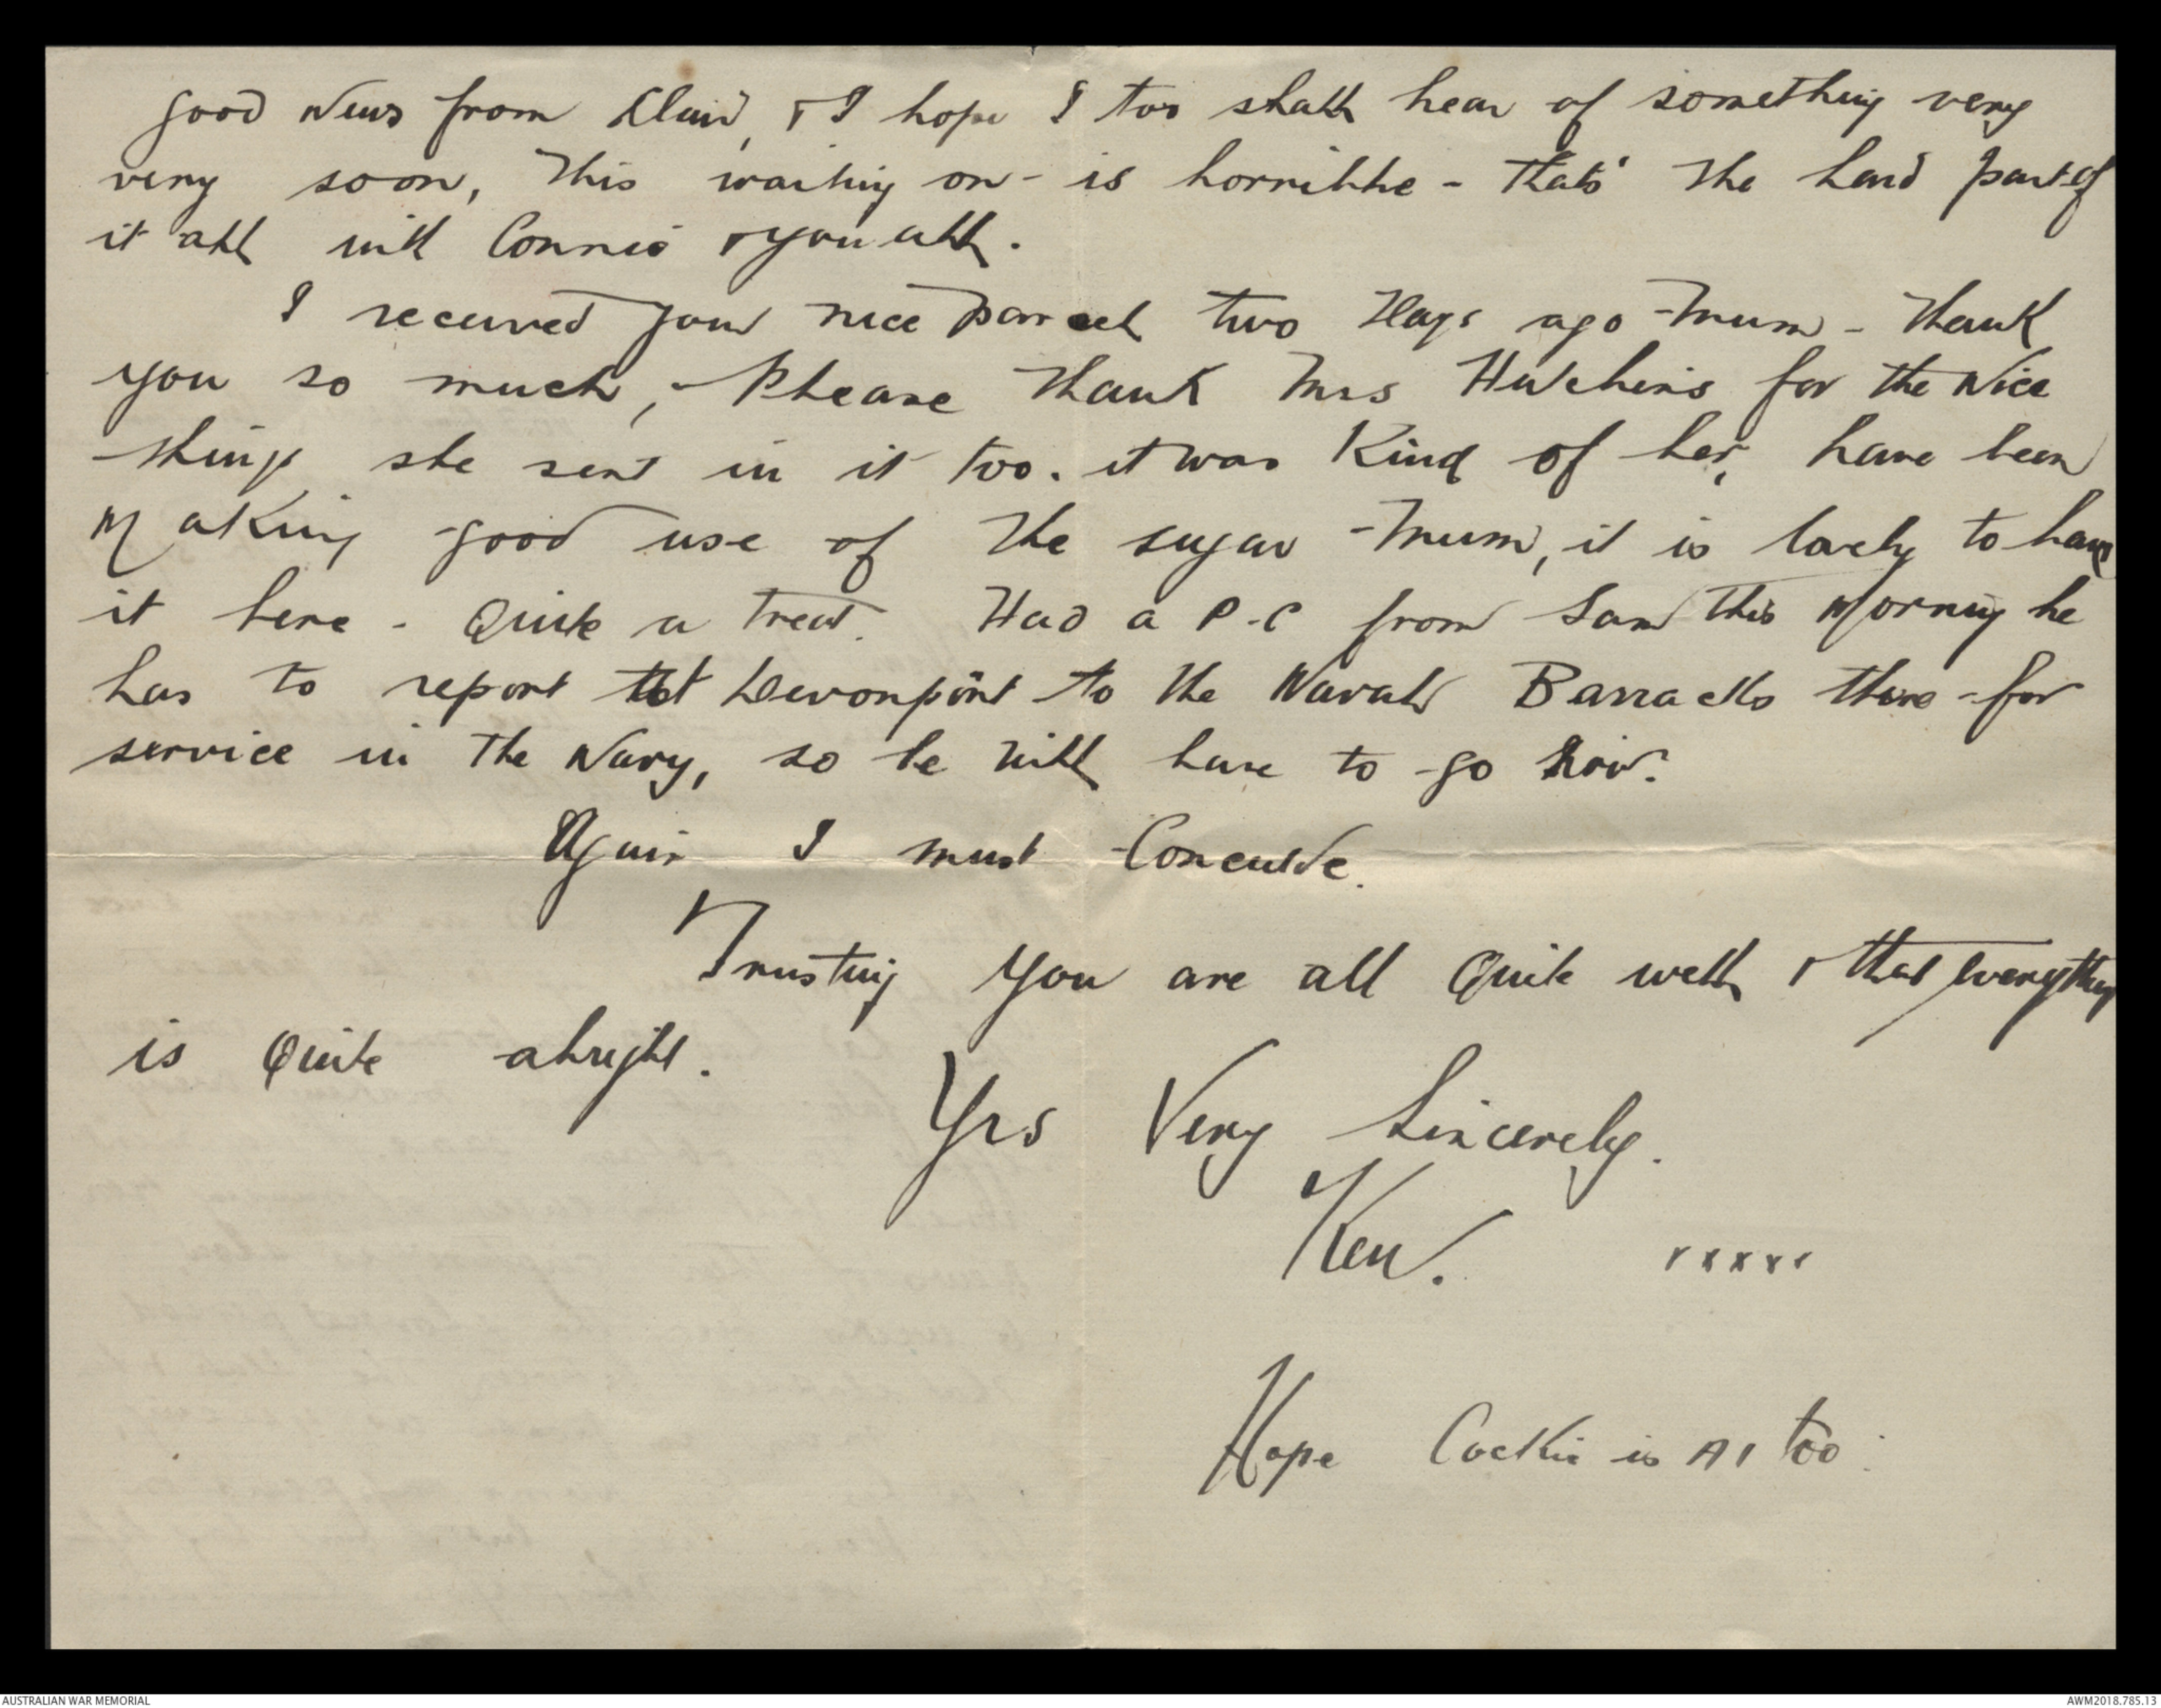 good News from Clair, & I hope I too shall hear of something very
very soon, This waiting on - is horrible - thats' the hard part of
it all with Connie & you all.
I received your nice parcel two days ago Mum - Thank
you so much, - Please thank Mrs Hutchens for the Nice
things she sent in it too. it was Kind of her, have been
Making good use of the sugar Mum, it is lovely to have
it here - Quite a treat. Had a P.C from Sam this Morning he
has to report at Devonport to the Naval Barracks there - for
service in the Navy, so he will have to go now.
Again I must Conculde.
Trusting You are all Quite well & that everything
is Quite alright.
Yrs Very Sincerely.
Ken. xxxxx
Hope Cockie is A1 too.
AUSTRALIAN WAR MEMORIAL
AWM2018.785.13